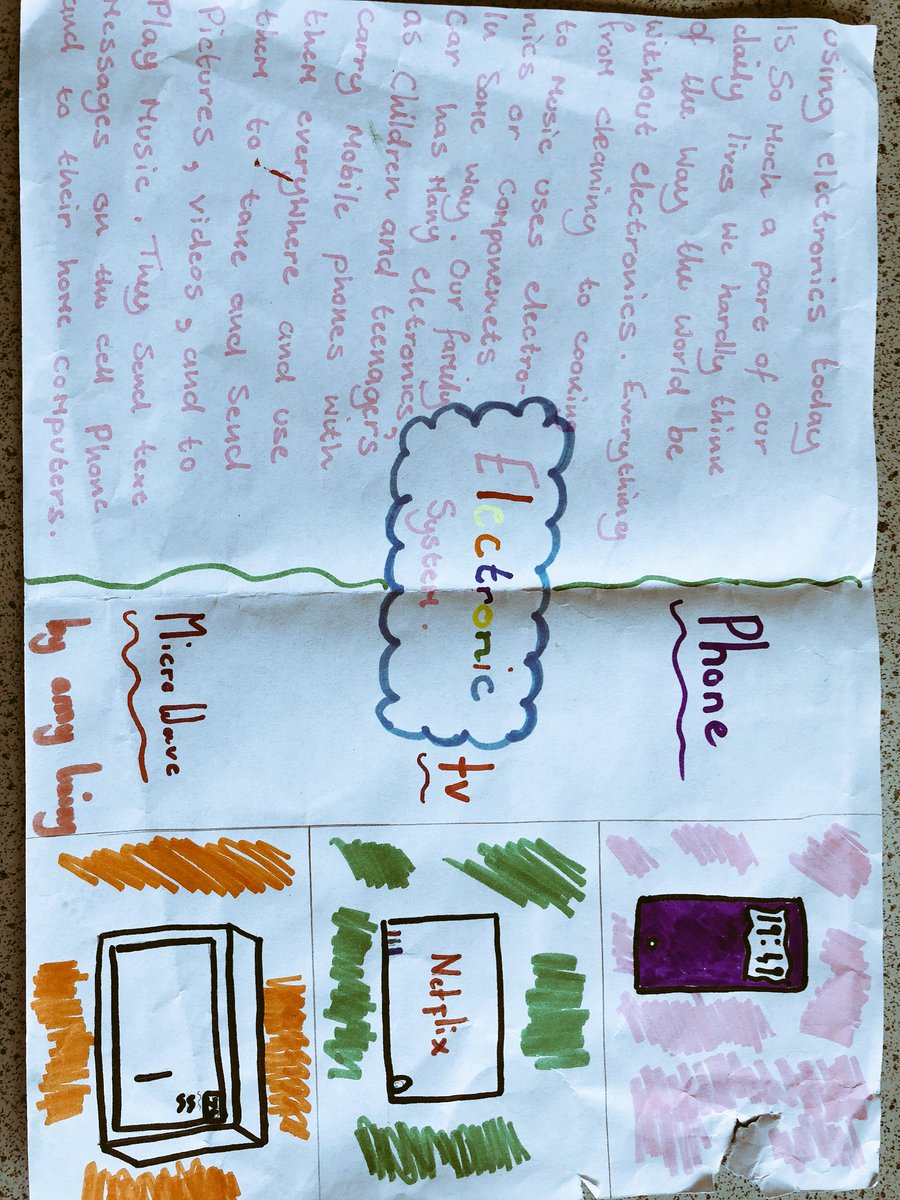 Using electronics today
Is So Much a part of our
daily lives we hardly think
of the Way the World be
Without electronics. Everything
from cleaning to cooking
to Music uses electro-
nics or Componemets
In Some way. Our family
Car has Many eletronics,
as Children and teenager's
carry Mobile phones with
them everywhere and use
them to take and Send
Pictures, videos, and to
Play Music. They Send text
Messages on the cell Phone
and to their home Computers.
Electronic
System.
Phone
tv
Micro Wave
by amy
19:49
Netflix